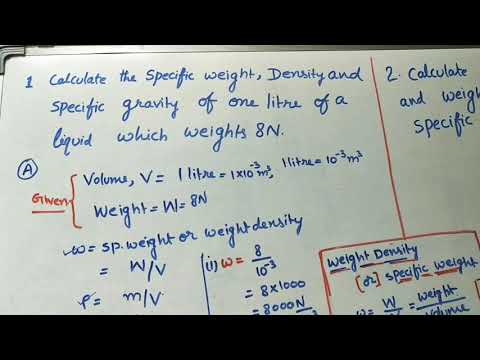 1 Calculate the Specific weight, Density and
Specific gravity of one litre of a
liquid which weights 8N.
(A)
Given
Volume, V = 1 litre = 1×10⁻³m³, 1 litre = 10⁻³m³
Weight = W = 8N
w = sp. weight or weight density
= W/V
ρ = m/V
(i) w = 8/10⁻³
= 8×1000
= 8000 N/
2. Calculate
and weigh
Specific
Weight Density
[or] specific weight
w = W/V = weight/volume